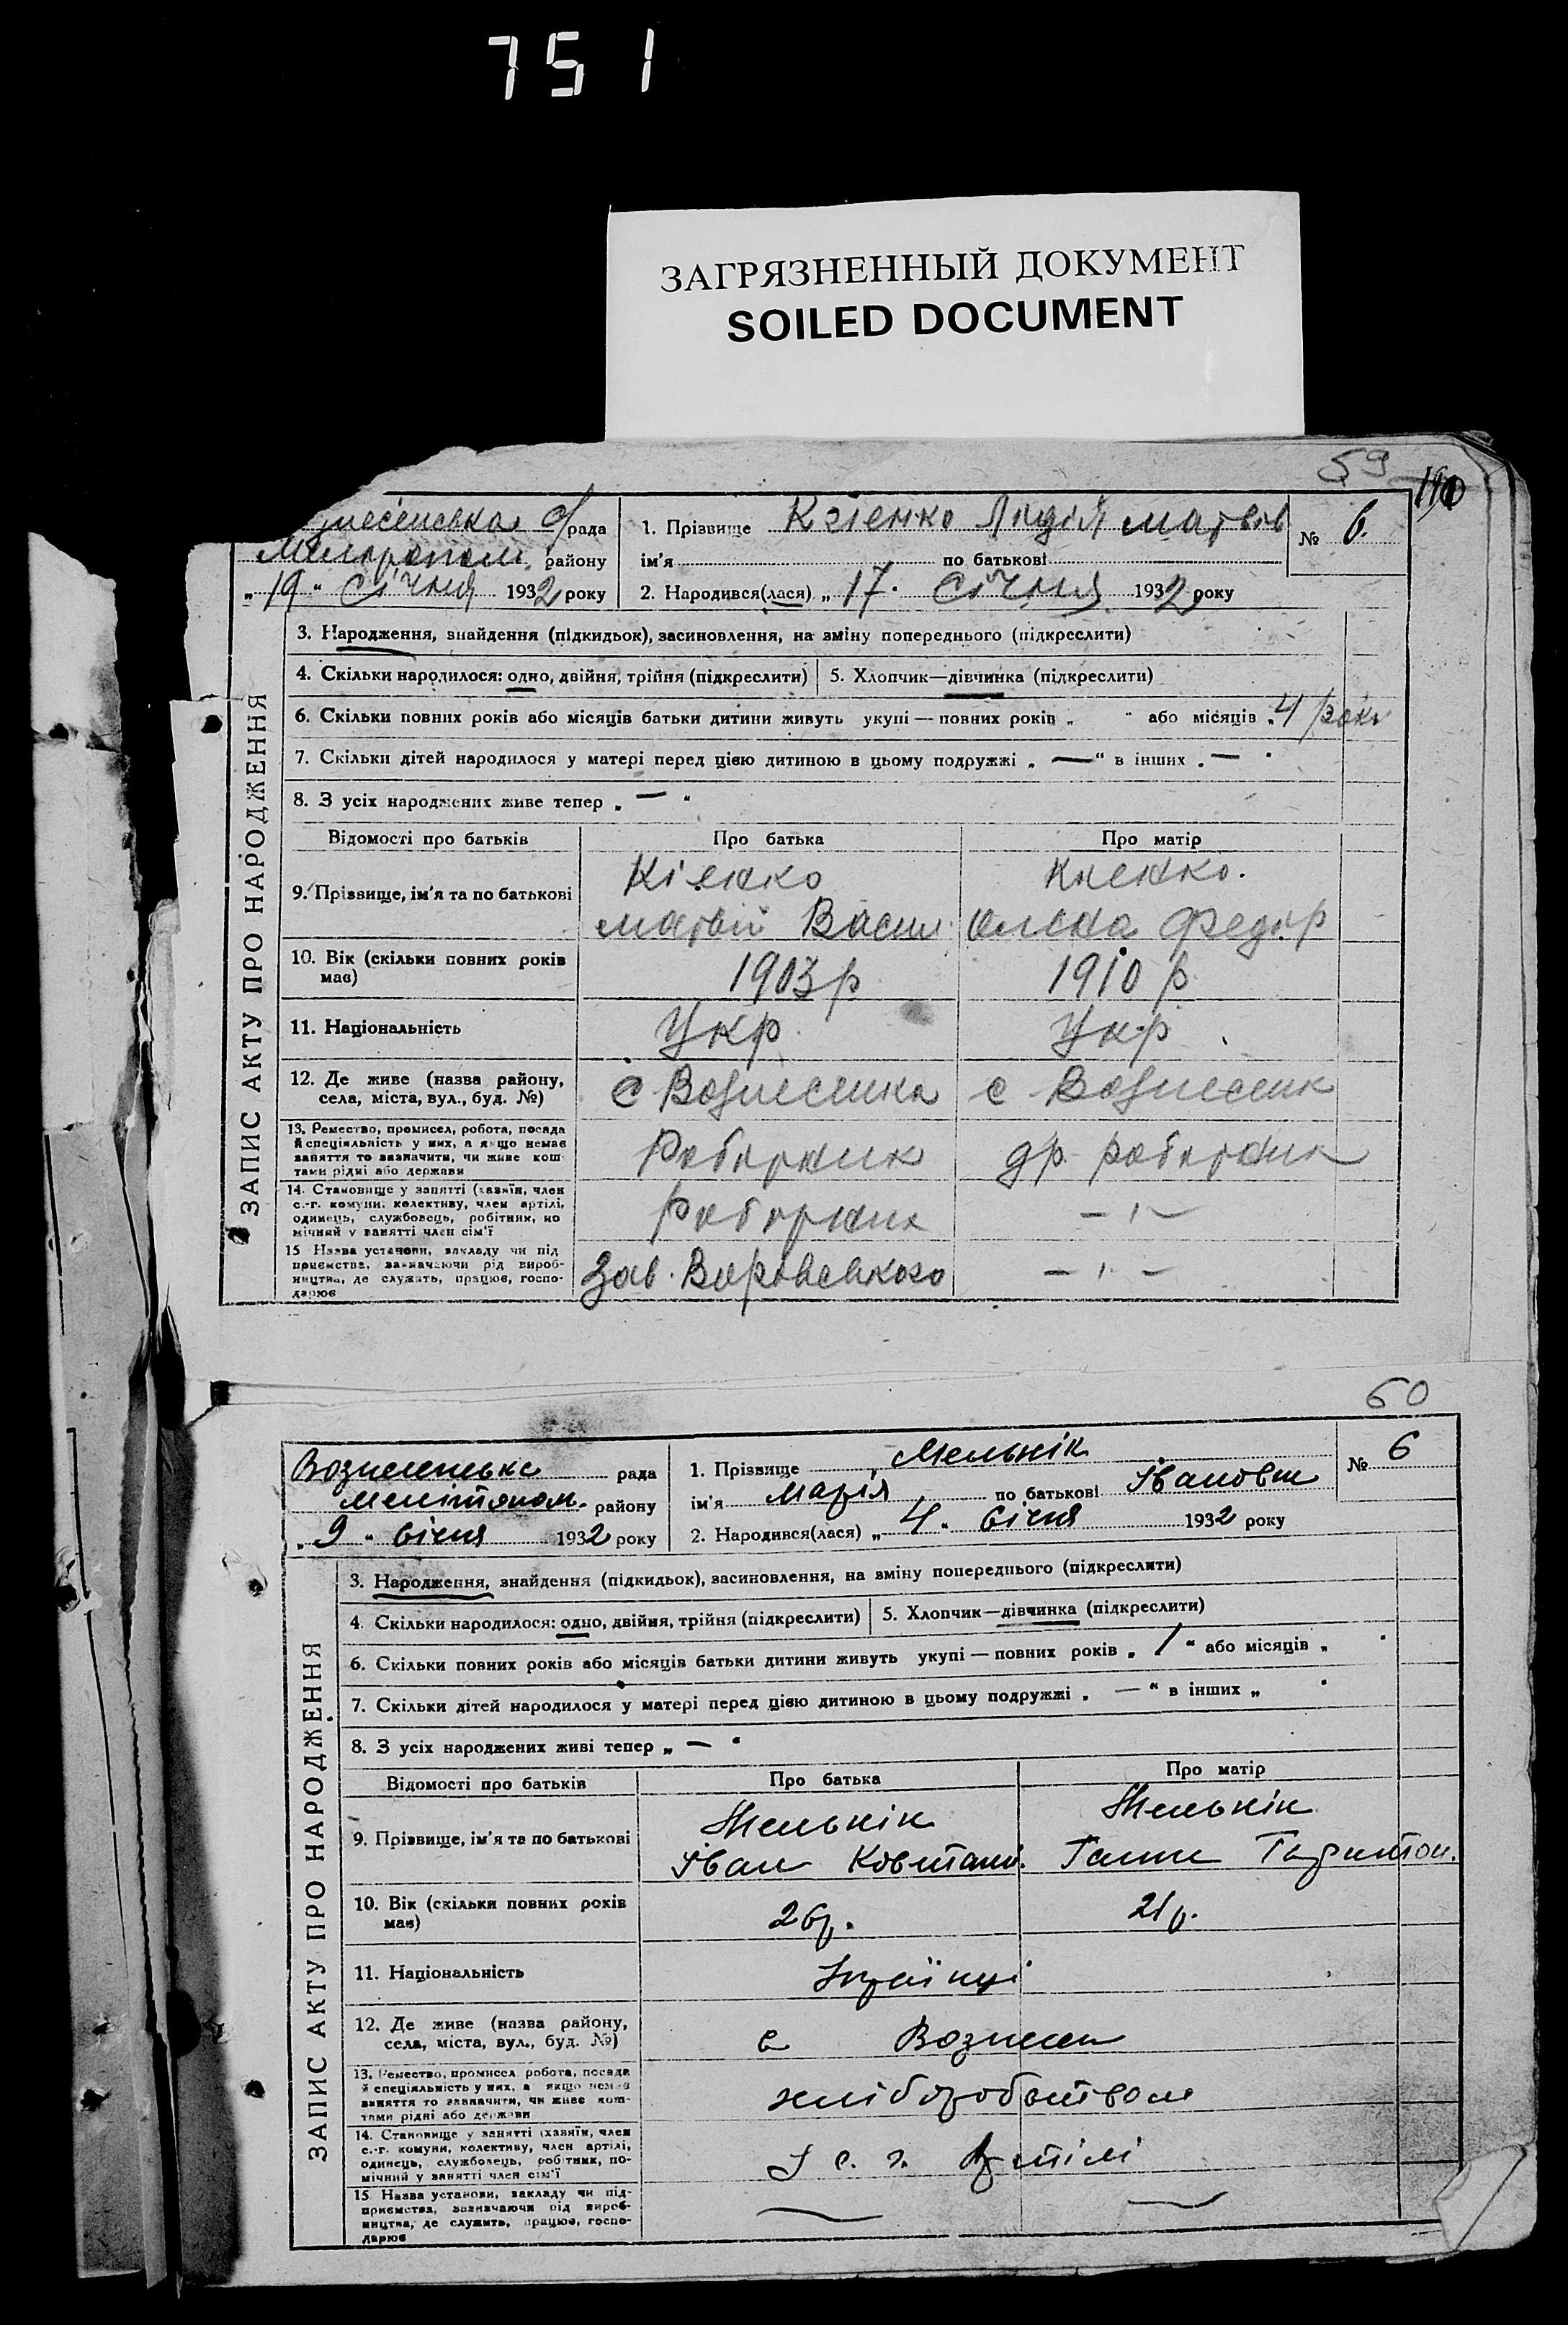 751
ЗАГРЯЗНЕННЫЙ ДОКУМЕНТ
SOILED DOCUMENT
59
рада
району
„ 19 " Січня 1932 року
1. Прізвище Лидія Матвів
ім'я по батькові
2. Народився(лася) „ 17 " Січня 1932 року
№ 6.
ЗАПИС АКТУ ПРО НАРОДЖЕННЯ
3. Народження, знайдення (підкидьок), засиновлення, на зміну попереднього (підкреслити)
4. Скільки народилося: одно, двійня, трійня (підкреслити)
5. Хлопчик—дівчинка (підкреслити)
6. Скільки повних років або місяців батьки дитини живуть укупі — повних років „ " або місяців „ 4 роки
7. Скільки дітей народилося у матері перед цією дитиною в цьому подружжі „ — " в інших „ — "
8. З усіх народжених живе тепер „ — "
Відомості про батьків Про батька Про матір
9. Прізвище, ім'я та по батькові
Матвій Васил. Федор
10. Вік (скільки повних років має) 1903 р 1910 р
11. Національність Укр. Укр.
12. Де живе (назва району, села, міста, вул., буд. №) с
13. Ремество, промисел, робота, посада
й спеціяльність у них, а якщо немає
заняття то зазначити, чи живе кош-
тами рідні або держави
Роботник др. роботник
14. Становище у занятті (хазяїн, член
с.-г. комуни, колективу, член артілі,
одинець, службовець, робітник, по
мічний у занятті член сім'ї
Роботник — " —
15 Назва установи, закладу чи під
приємства, зазначаючи рід вироб-
ництва, де служить, працює, госпо-
дарює
Зав. — " —
60
рада
Мелітопол. району
„ 9 " Січня 1932 року
1. Прізвище Мельнік
ім'я Марія по батькові Івановна
2. Народився(лася) „ 4 " Січня 1932 року
№ 6
ЗАПИС АКТУ ПРО НАРОДЖЕННЯ
3. Народження, знайдення (підкидьок), засиновлення, на зміну попереднього (підкреслити)
4. Скільки народилося: одно, двійня, трійня (підкреслити)
5. Хлопчик—дівчинка (підкреслити)
6. Скільки повних років або місяців батьки дитини живуть укупі — повних років „ 1 " або місяців „ "
7. Скільки дітей народилося у матері перед цією дитиною в цьому подружжі „ — " в інших „ "
8. З усіх народжених живі тепер „ — "
Відомості про батьків Про батька Про матір
9. Прізвище, ім'я та по батькові
Мельнік Мельнік
Іван Ганна
10. Вік (скільки повних років має) 26 р. 21 р.
11. Національність Українці
12. Де живе (назва району, села, міста, вул., буд. №) с Вознесен
13. Ремество, промисел, робота, посада
й спеціяльність у них, а якщо немає
заняття то зазначити, чи живе кош-
тами рідні або держави
хліборобством
14. Становище у занятті (хазяїн, член
с.-г. комуни, колективу, член артілі,
одинець, службовець, робітник, по-
мічний у занятті член сім'ї
У с. г. артілі
15. Назва установи, закладу чи під-
приємства, зазначаючи рід вироб-
ництва, де служить, працює, госпо-
дарює